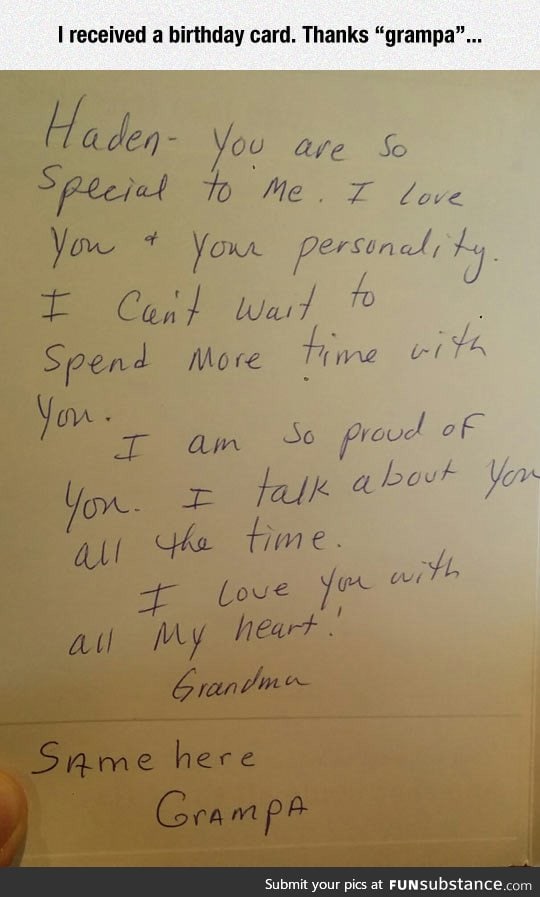 I received a birthday card. Thanks “grampa”...
Haden- You are so
special to Me. I love
You + Your personality.
I Can't Wait to
Spend More time with
You.
I am so proud of
You. I talk about You
all the time.
I Love You with
all My heart!
Grandma
SAme here
GrAmpA
Submit your pics at FUNsubstance.com